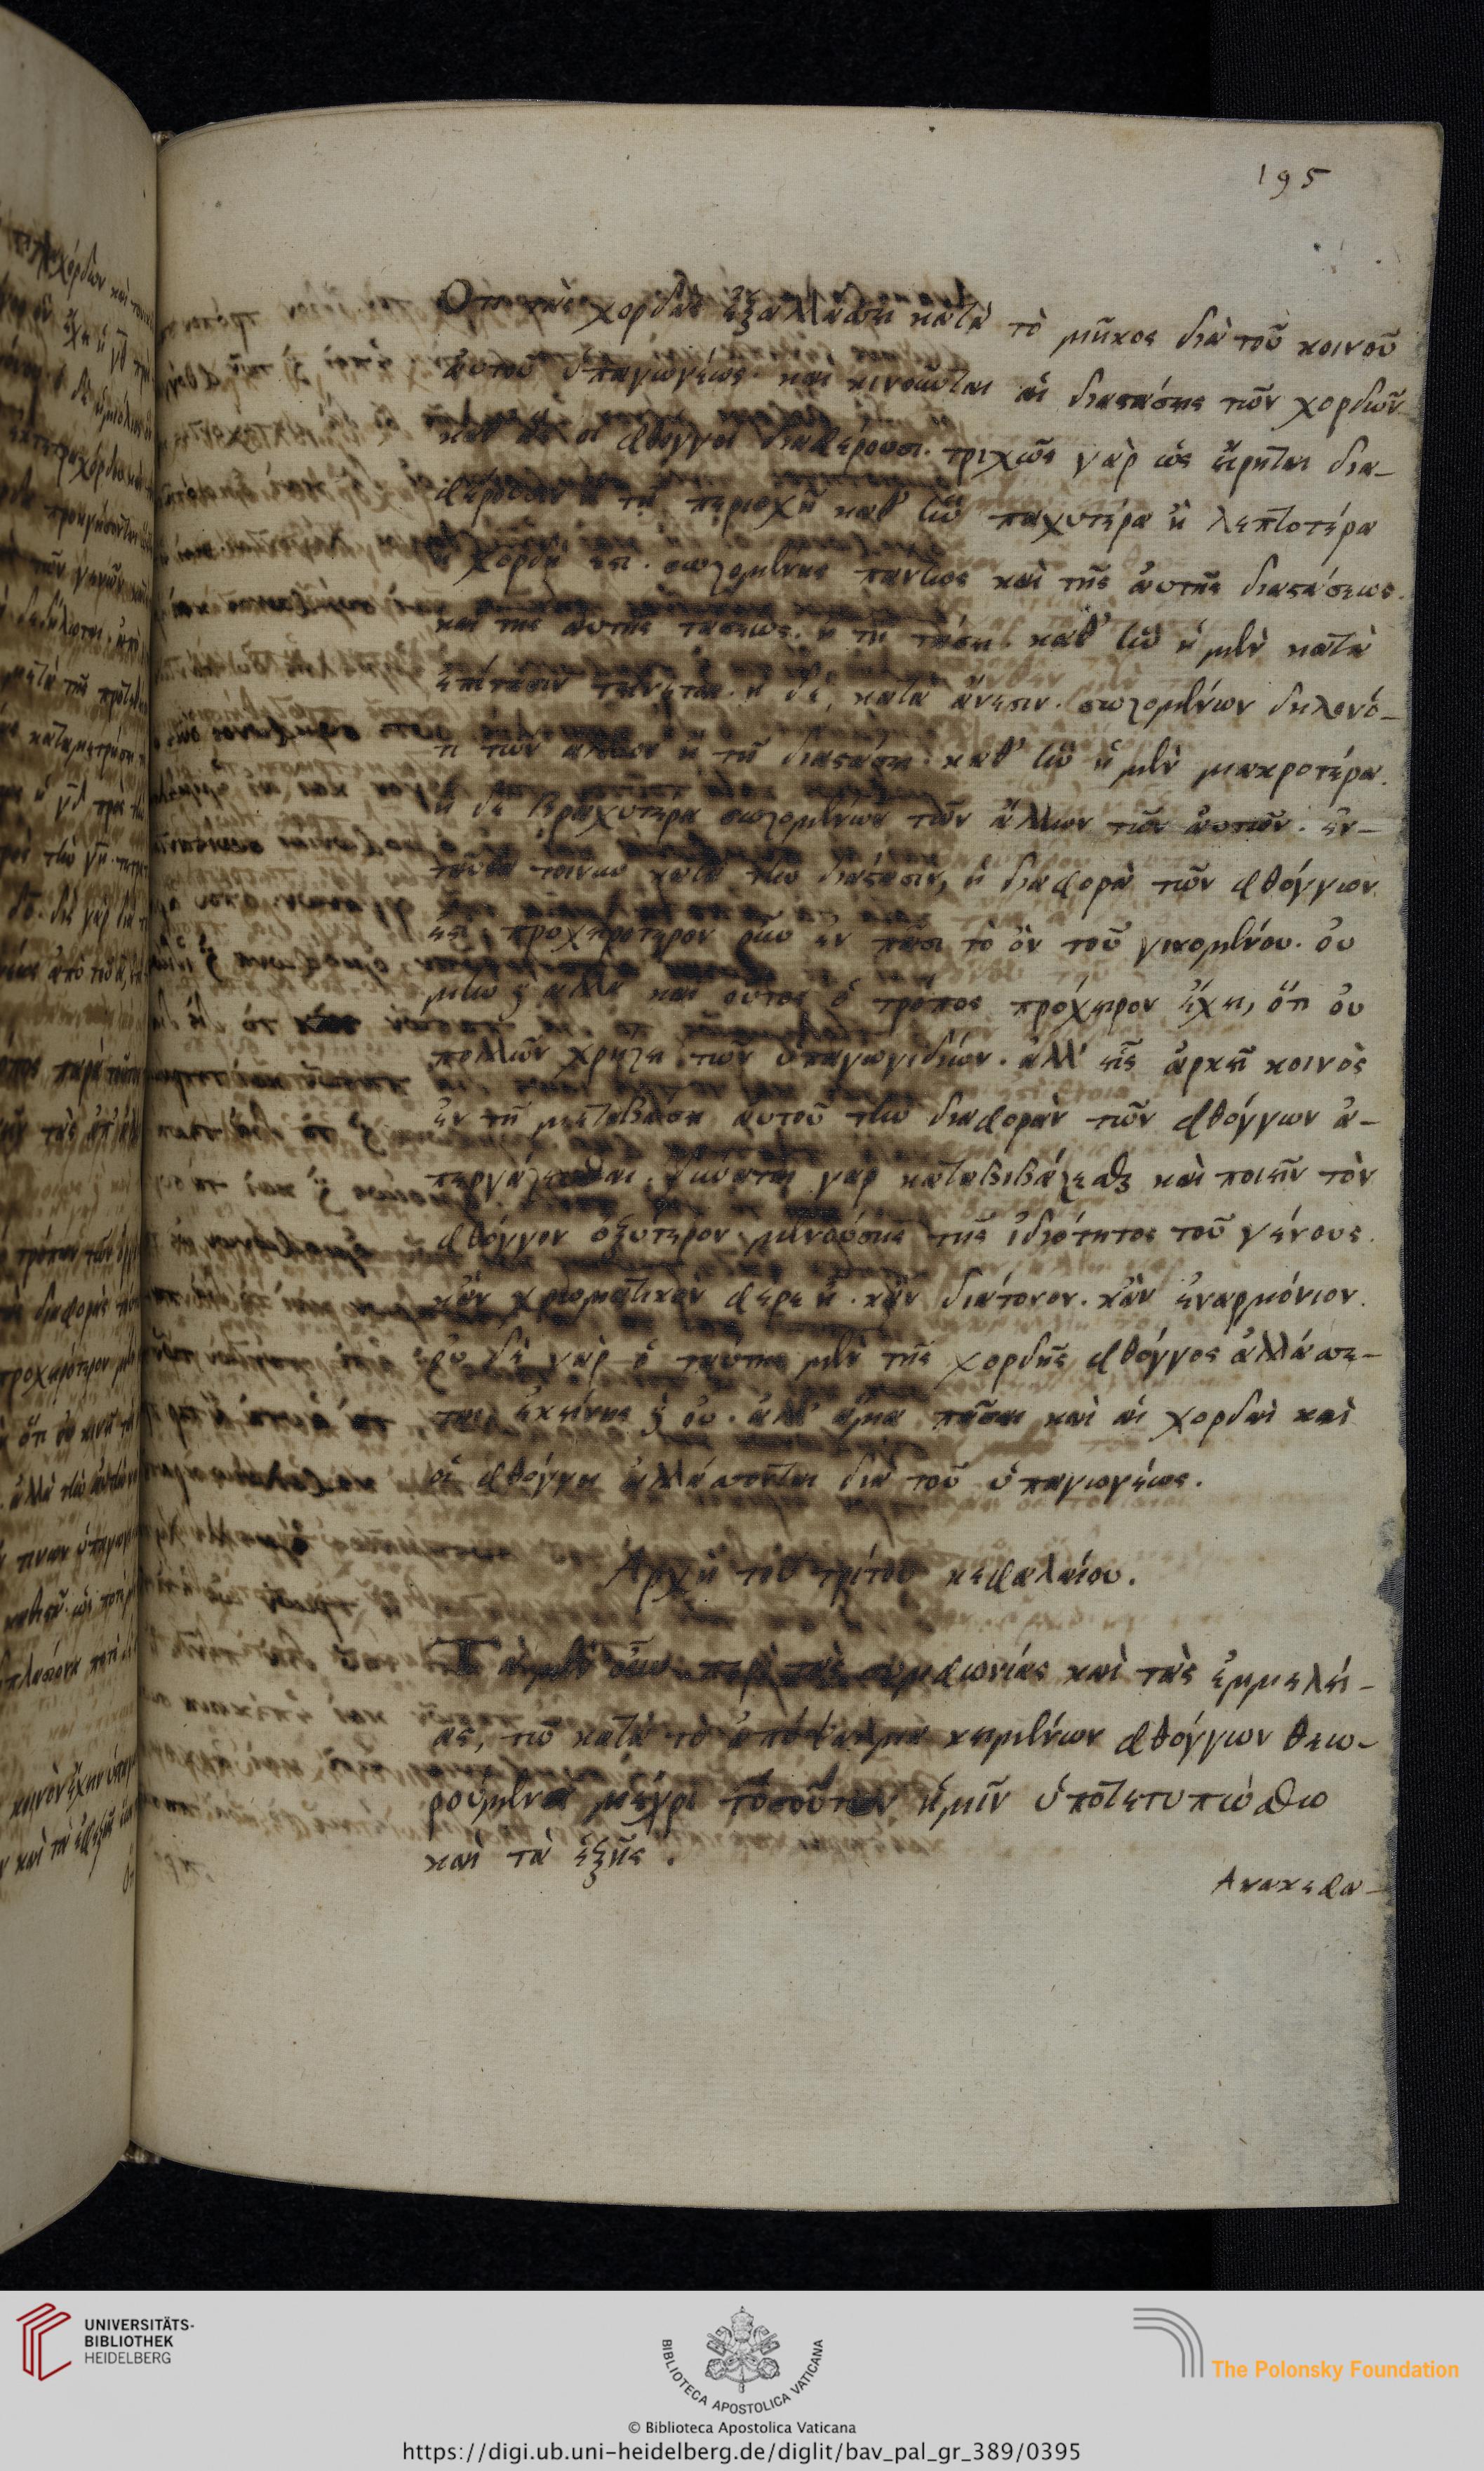 195
Ὅτι τὰς χορδὰς ἐξαλλάττει κατὰ τὸ μῆκος διὰ τοῦ κοινοῦ
αὐτοῦ ὑπαγωγέως. καὶ κινοῦνται αἱ διαστάσεις τῶν χορδῶν
καθ' ἃς οἱ φθόγγοι διαφέρουσι. τριχῶς γὰρ ὡς εἴρηται δια-
φέρουσιν ἢ τῇ περιοχῇ καθ' ἣν παχυτέρα ἢ λεπτοτέρα
ἡ χορδή ἐστι. σωζομένης πάντως καὶ τῆς αὐτῆς διαστάσεως.
καὶ τῆς αὐτῆς τάσεως. ἢ τῇ τάσει. καθ' ἣν ἡ μὲν κατὰ
ἐπίτασιν τείνεται. ἡ δὲ, κατὰ ἄνεσιν. σωζομένων δηλονό-
τι τῶν ἄλλων ἢ τῇ διαστάσει. καθ' ἣν ἡ μὲν μακροτέρα.
ἡ δὲ βραχυτέρα σωζομένων τῶν ἄλλων τῶν αὐτῶν. ἐν-
ταῦθα τοίνυν κατὰ τὴν διάστασιν, ἡ διαφορὰ τῶν φθόγγων
ἐστὶ, προχειρότερον οὖν ἐν πᾶσι τὸ ὂν τοῦ γινομένου. οὐ
μὴν δὲ ἀλλὰ καὶ οὗτος ὁ τρόπος πρόχειρον ἔχει, ὅτι οὐ
πολλῶν χρῄζει τῶν ὑπαγωγιδίων. ἀλλ' εἷς ἀρκεῖ κοινὸς
ἐν τῇ μεταβάσει αὐτοῦ τὴν διαφορὰν τῶν φθόγγων ἀ-
περγάζεσθαι. δύναται γὰρ καταβιβάζεσθαι καὶ ποιεῖν τὸν
φθόγγον ὀξύτερον μενούσης τῆς ἰδιότητος τοῦ γένους.
κἂν χρωματικὸν φέρε ᾖ. κἂν διάτονον. κἂν ἐναρμόνιον.
οὐ δὲ γὰρ ὁ ταύτης μὲν τῆς χορδῆς φθόγγος ἀλλάττε-
ται, ἐκείνης δὲ οὔ. ἀλλ' ἅμα πᾶσαι καὶ αἱ χορδαὶ καὶ
οἱ φθόγγοι ἀλλάττονται διὰ τοῦ ὑπαγωγέως.
Ἀρχὴ τοῦ τρίτου κεφαλαίου.
Τὰ μὲν οὖν περὶ τὰς συμφωνίας καὶ τὰς ἐμμελεί-
ας, τῶν κατὰ τὸ ἀπόψαλμα κειμένων φθόγγων θεω-
ρούμενα μέχρι τοσούτων ἡμῖν ὑποτετυπώσθω
καὶ τὰ ἑξῆς.
Ἀνακεφα-
UNIVERSITÄTS-
BIBLIOTHEK
HEIDELBERG
BIBLIOTECA APOSTOLICA VATICANA
The Polonsky Foundation
© Biblioteca Apostolica Vaticana
https://digi.ub.uni-heidelberg.de/diglit/bav_pal_gr_389/0395